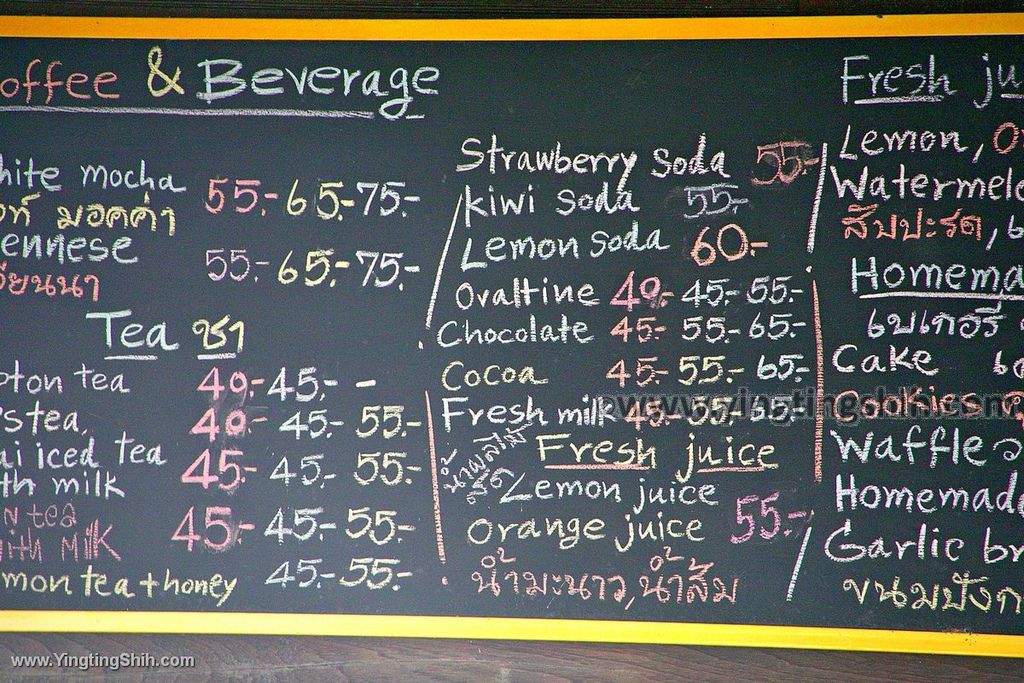 offee & Beverage
hite mocha 55.- 65.- 75.-
มอคค่า
ennese 55.- 65.- 75.-
วียนนา
Tea ชา
pton tea 40.- 45.- -
stea, 40.- 45.- 55.-
ai iced tea
th milk 45.- 45.- 55.-
N tea
with milk 45.- 45.- 55.-
mon tea + honey 45.- 55.-
Strawberry Soda 55.-
kiwi Soda 55.-
Lemon Soda 60.-
Ovaltine 40.- 45.- 55.-
Chocolate 45.- 55.- 65.-
Cocoa 45.- 55.- 65.-
Fresh milk 45.- 55.- 65.-
น้ำผลไม้
Fresh juice
Lemon juice
Orange juice 55.-
น้ำมะนาว, น้ำส้ม
Fresh ju
Lemon, O
Watermelo
สับปะรด,
Homema
เบเกอรี่
Cake
Cookies
Waffle
Homemad
Garlic br
ขนมปัง
www.yingtingshih.com
www.YingtingShih.com